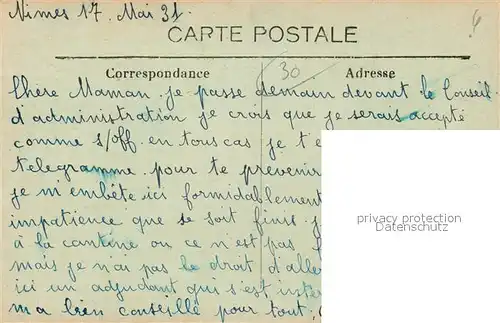 Nimes 17. Mai 31.
CARTE POSTALE
Correspondance
30
Adresse
Chère Maman. je passe demain devant le Conseil
d'administration je crois que je serais accepté
comme s/off. en tous cas je t'e
telegramme. pour te prevenir
je m'embète ici formidablement
impatience que se soit finis. j
à la cantine ou ce n'est pas
mais je n'ai pas le droit d'alle
ici un adjudant qui s'est inter
m'a bien conseillé pour tout,
privacy protection
Datenschutz